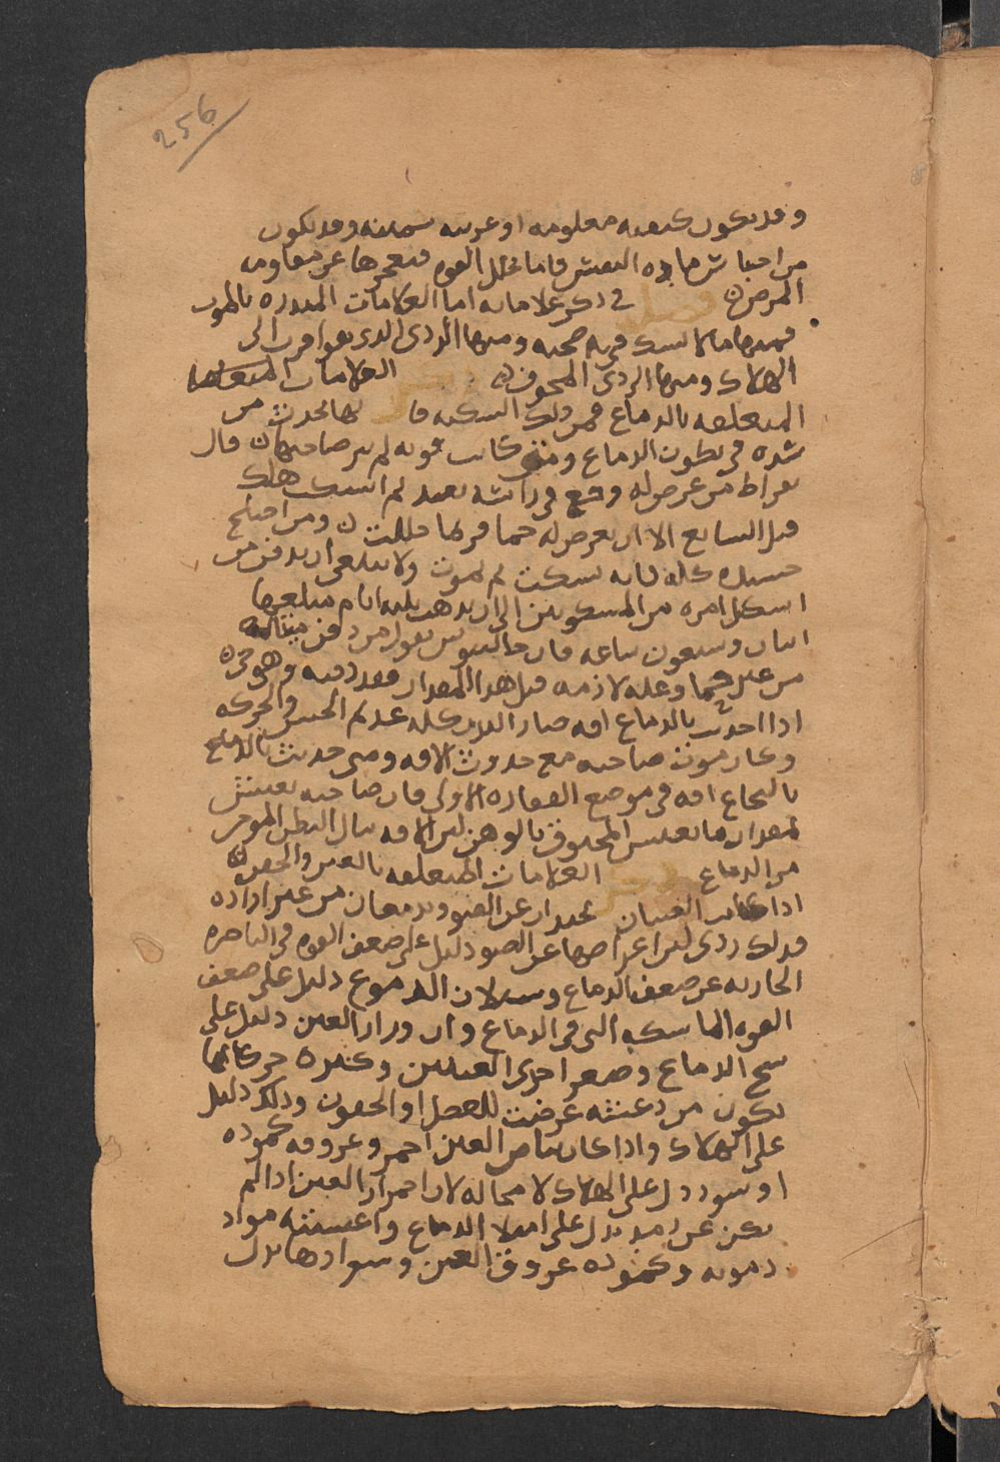 256
وقد يكون كيفيه معلومه او غريبه سمينه وقد يكون
من احتباس مادة التعيش فاما تحلل القوه فتعجزها عن مقاومه
المرض فصل في ذكر علاماته اما العلامات المنذره بالموت
فمنها ما لا نسك في صحته ومنها الردى الذى هو اقرب الى
الهلاك ومنها الردى المخوف ذكر العلامات المتعلقه
المتعلقه بالدماغ فمن ذلك السكته فا لها تحدث من
شده في بطون الدماغ ومتى كانت قويه لم يبر صاحبها قال
بقراط من عرض له وجع في راسه بعيد لم اسكت هلك
قبل السابع الا ان يعرض له حما فربما حللت ومن اختلج
جسده كله فانه يسكت ثم يموت ولا ينبغى ان يدفن من
اشكل امره من المسكوتين الى ان يذهب ثلثه ايام مبلغها
اثنان وسبعون ساعه فان جالينوس يقول من دفن ميتا
من غير حما وعله لازمه قبل هذا المقدار فقد دفنه وهو حي
اذا احدثت بالدماغ افه صار البدن كله عديم الحس والحركه
وكان موت صاحبه مع حدوث الافه ومتى حدثت بالدماغ
بالنخاع افه في موضع الفقاره الاولى فان صاحبه يعيش
لمقدار ما يعيش المخنوق بالوهق لان الافه تنال البطن الموخر
من الدماغ ذكر العلامات المتعلقه بالعين والجفن
اذا كانت العينان تحيدان عن الضو وتدمعان من غير اراده
فذلك ردى لان اعراضها عن الضو دليل على ضعف القوه في الباصره
الحاريه عن ضعف الدماغ وسيلان الدموع دليل على ضعف
القوه الماسكه التى في الدماغ وان ورار العين دليل على
سح الدماغ وصغر احدى العينين وكثرة حركاتها
تكون من رعشه عرضت للعضل او الجفون وذلك دليل
على الهلاك واذا كان بياض العين احمر وعروقه كموده
او سود دل على الهلاك لا محاله لان احمرار العين اذا لم
يكن عن رمد يدل على امتلا الدماغ واغشيته مواد
دمويه وكموده عروق العين وسوادها يدل